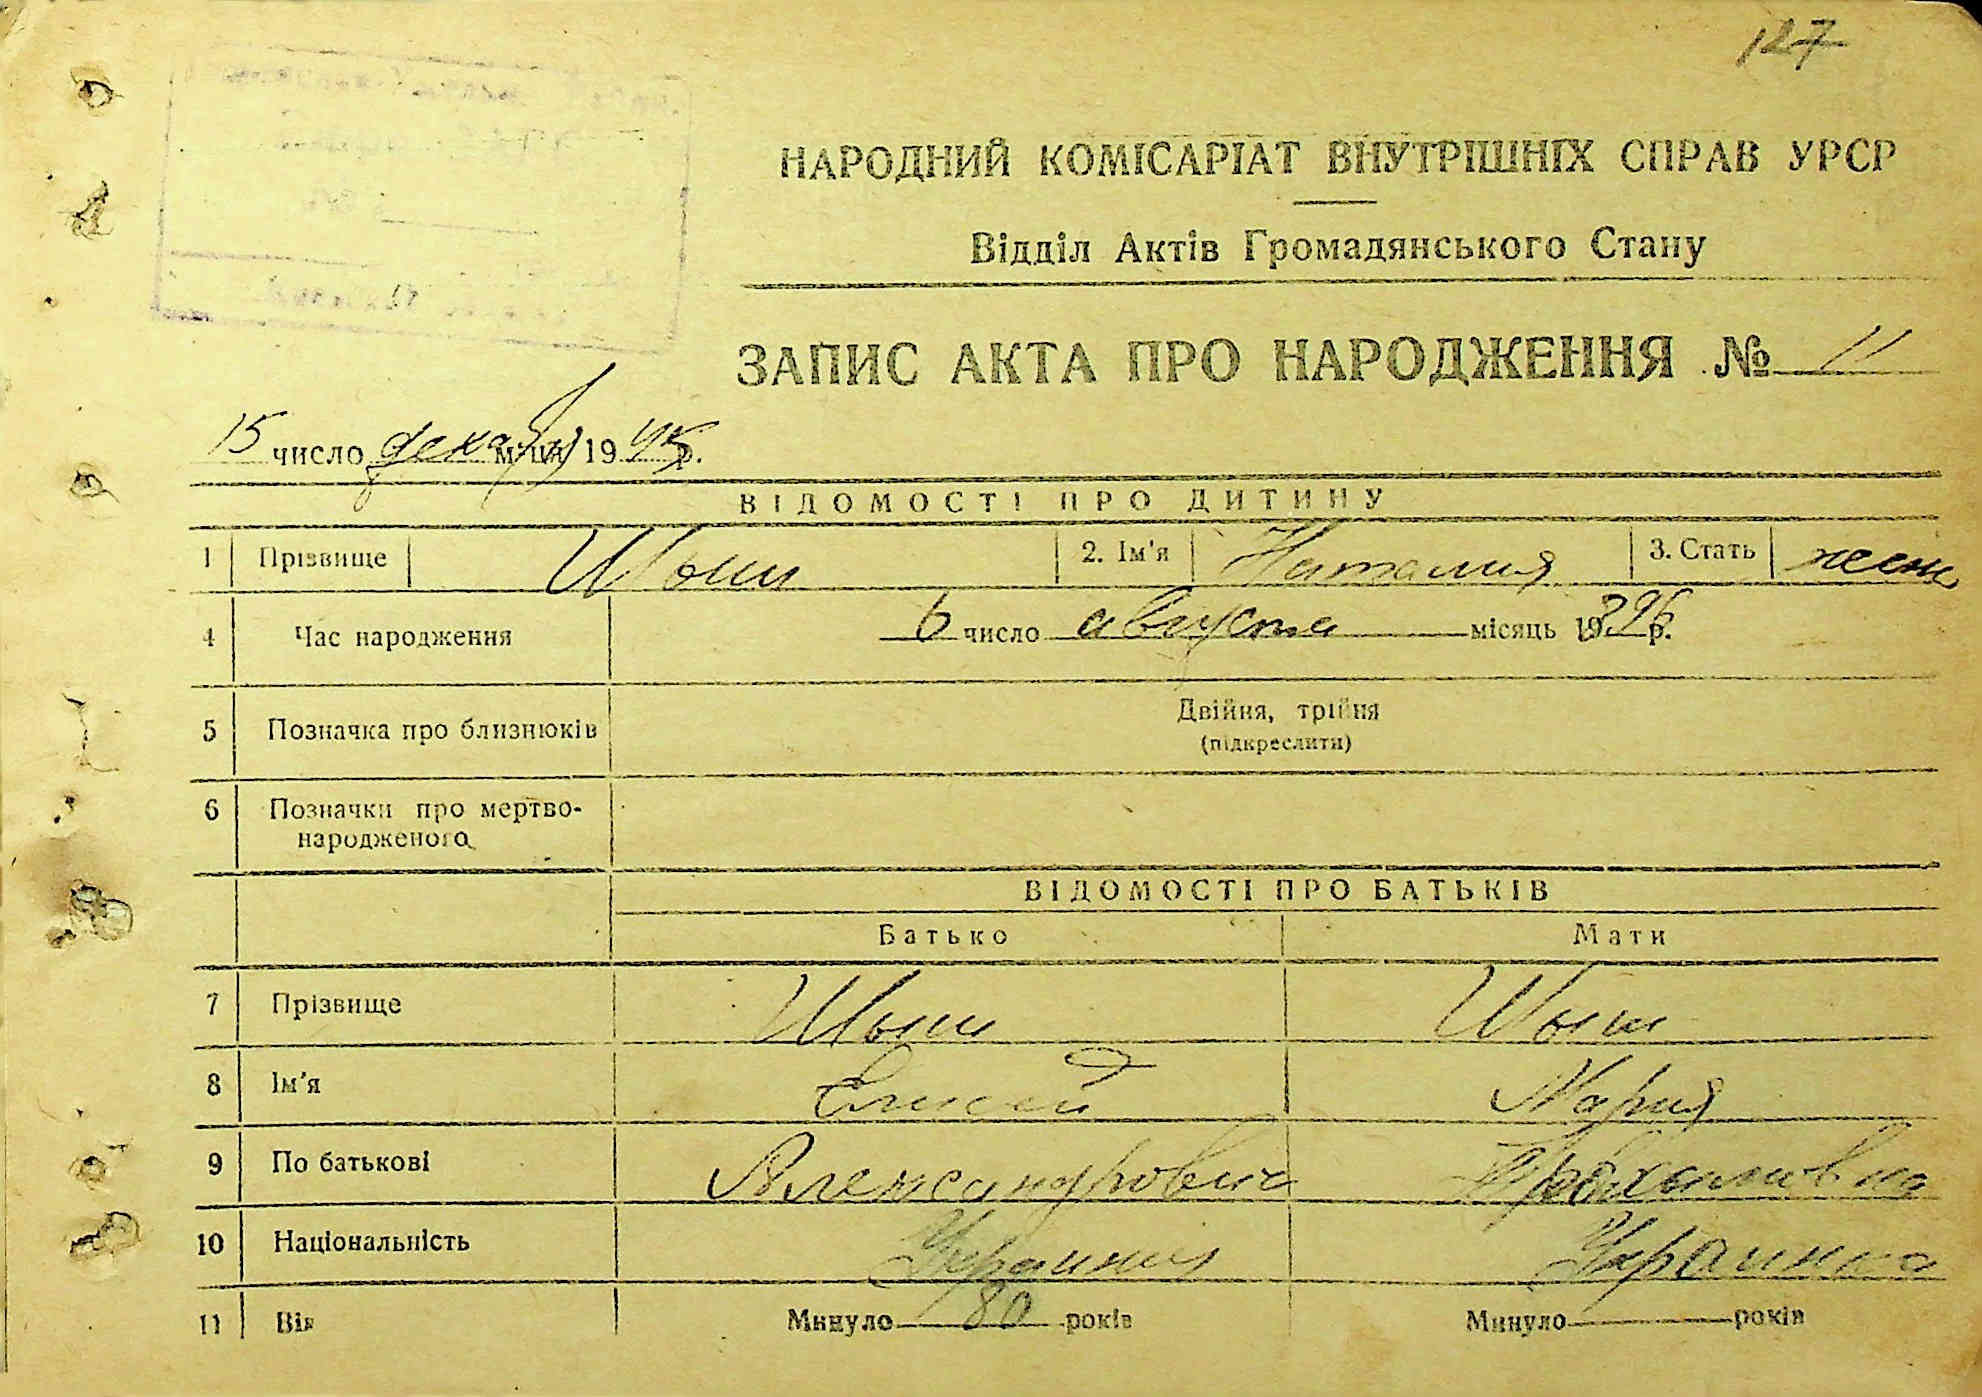 127
НАРОДНИЙ КОМІСАРІАТ ВНУТРІШНІХ СПРАВ УРСР
Відділ Актів Громадянського Стану
ЗАПИС АКТА ПРО НАРОДЖЕННЯ № 11
15 число декабря м-ця 1945 р.
ВІДОМОСТІ ПРО ДИТИНУ
1 Прізвище Шыш 2. Ім'я Наталия 3. Стать жен
4 Час народження 6 число августа місяць 1896 р.
5 Позначка про близнюків Двійня, трійня
(підкреслити)
6 Позначки про мертво-
народженого
ВІДОМОСТІ ПРО БАТЬКІВ
Батько Мати
7 Прізвище Шыш Шыш
8 Ім'я Елисей Мария
9 По батькові Александрович
10 Національність Украинец Украинка
11 Вік Минуло 80 років Минуло років